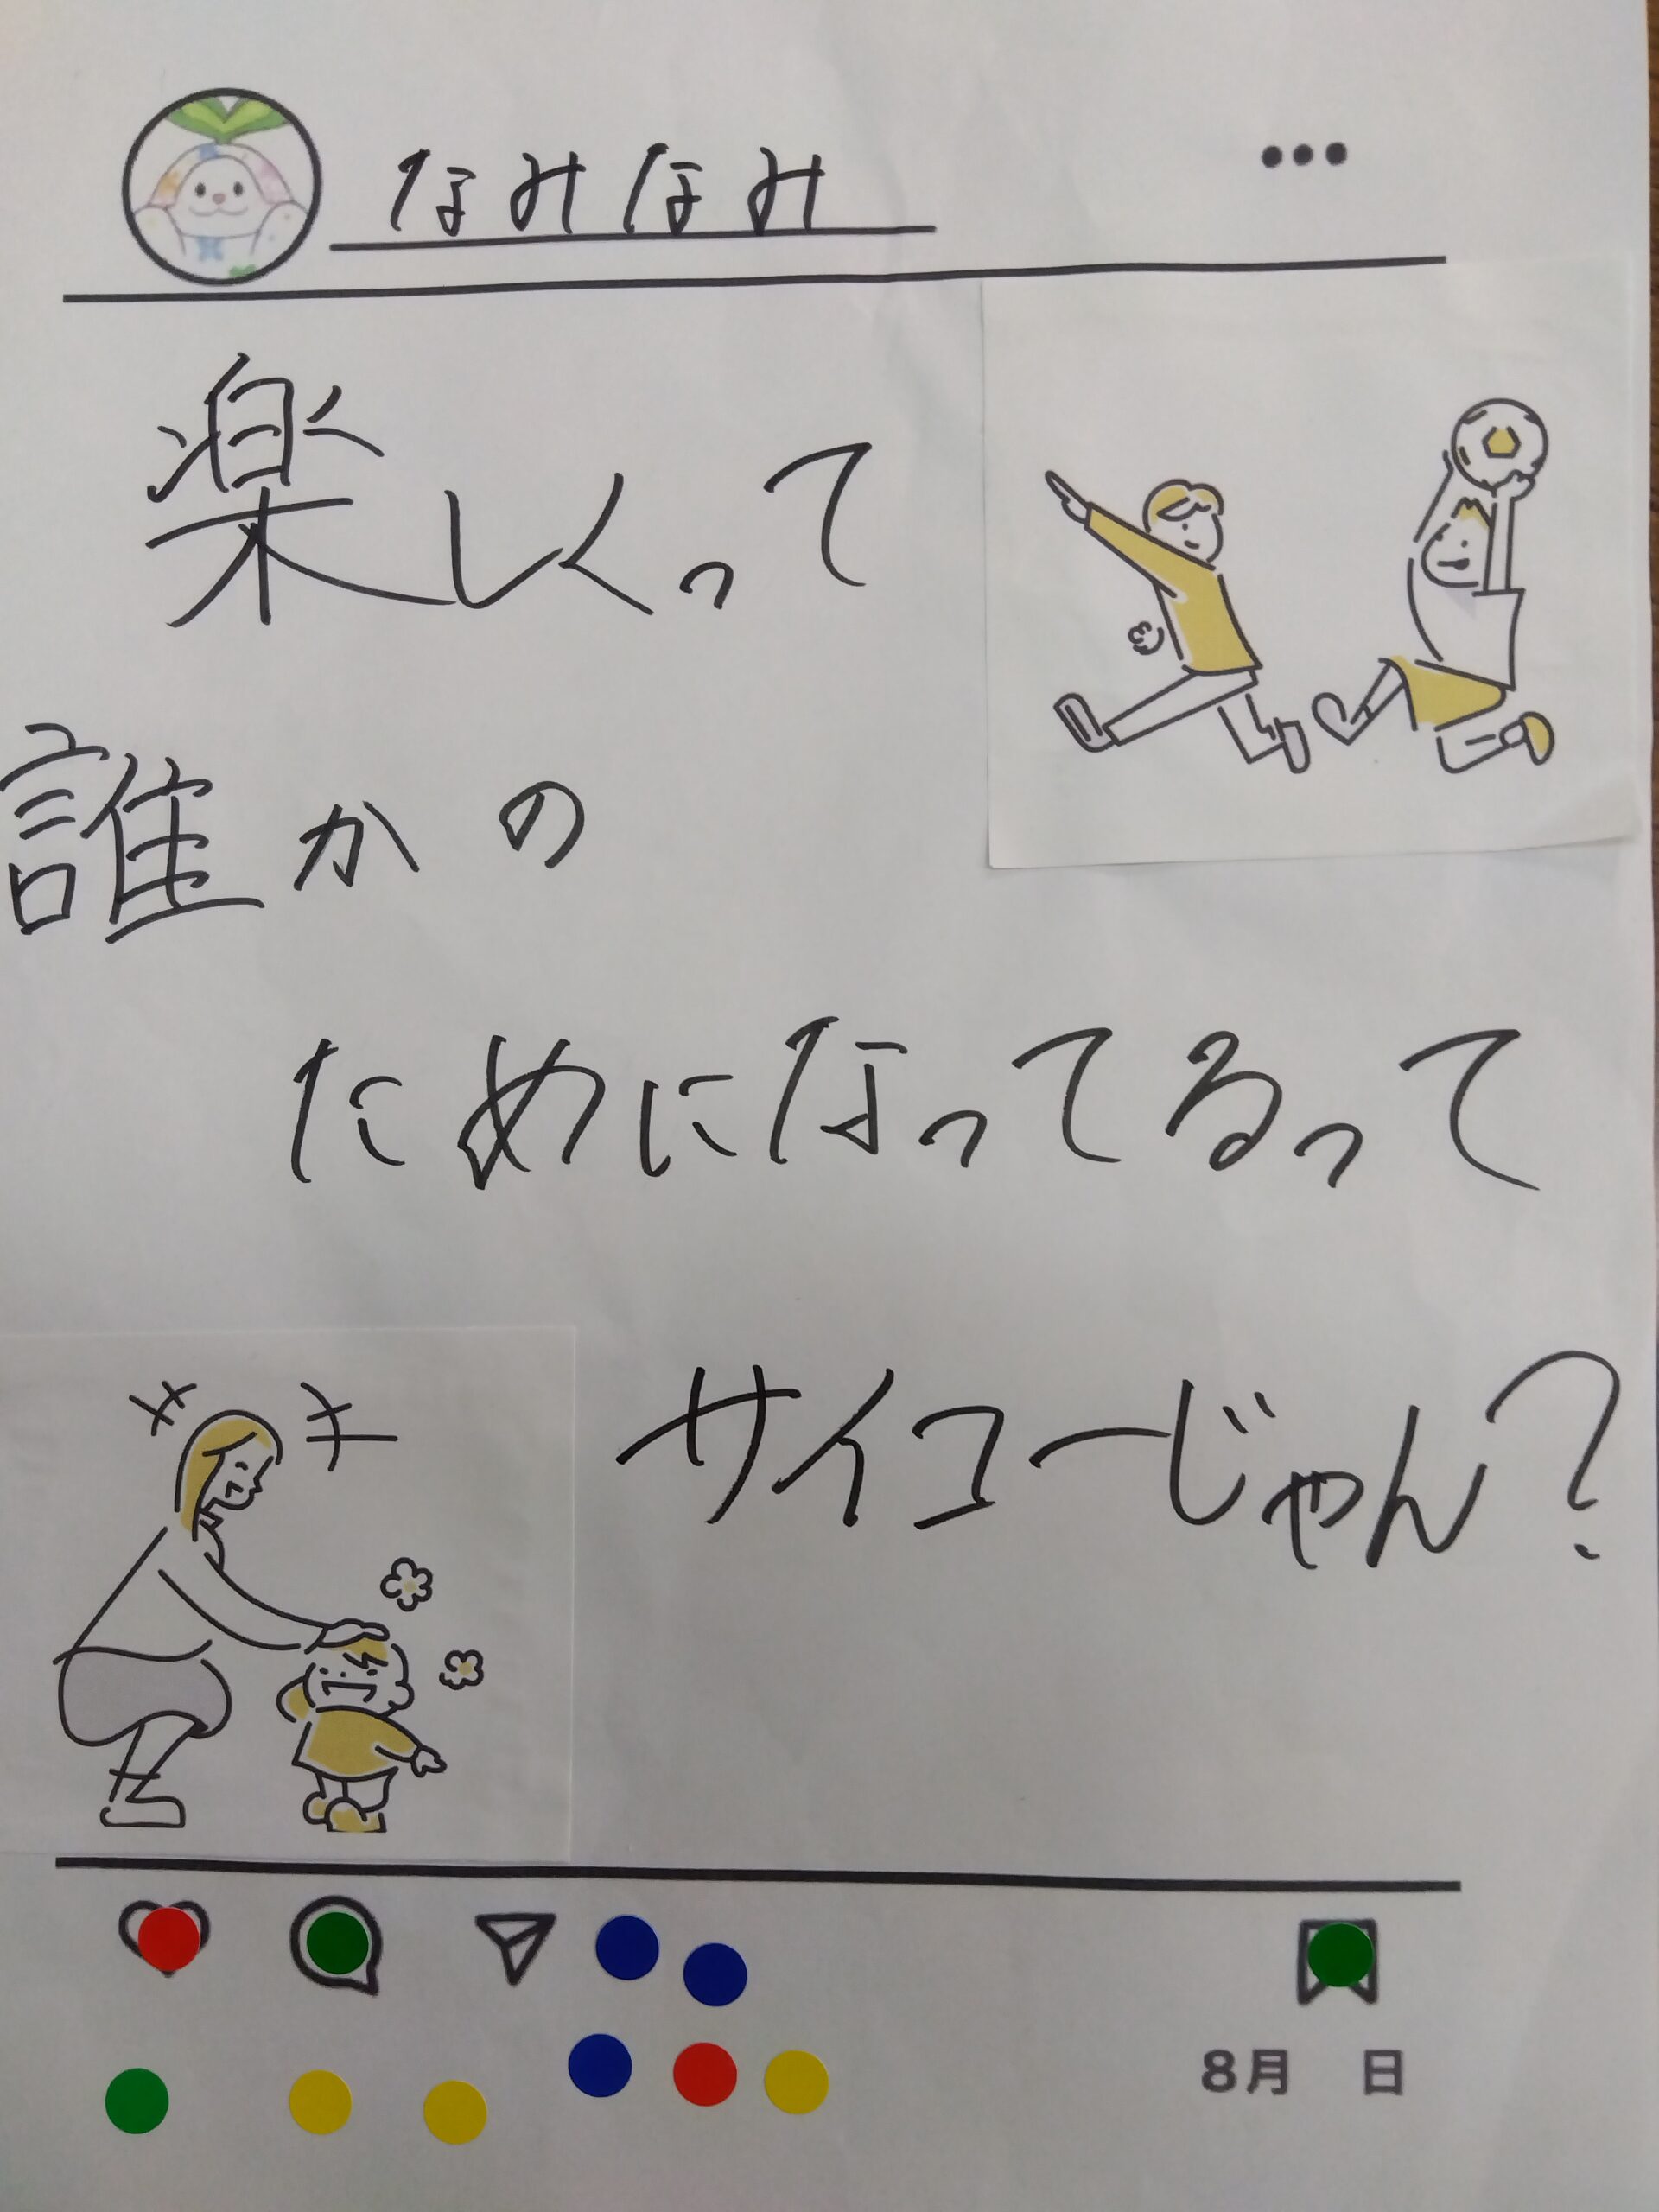 なみなみ
楽しくって
誰かの
ためになってるって
サイコーじゃん?
8月 日